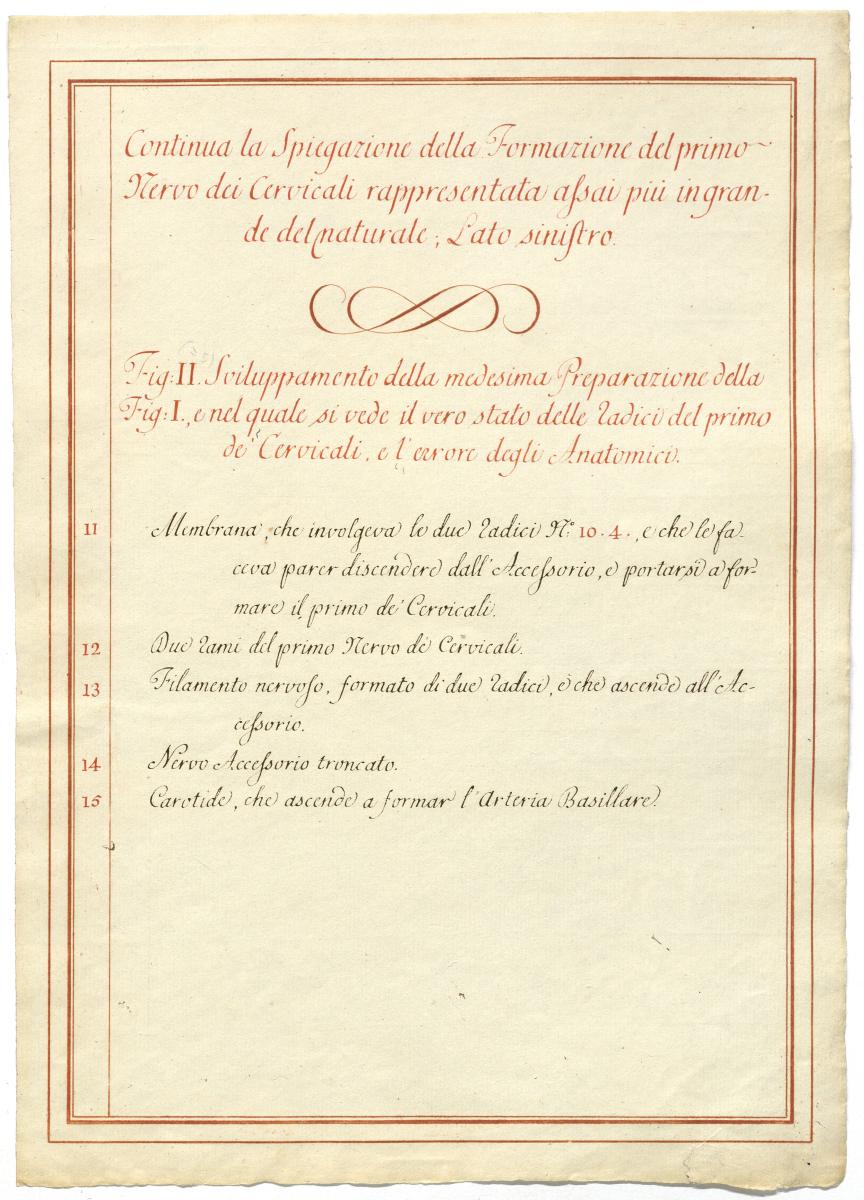 Continua la Spiegazione della Formazione del primo
Nervo dei Cervicali rappresentata aſsai più in gran-
de del naturale; Lato siniſtro.
Fig: II. Sviluppamento della medesima Preparazione della
Fig: I., e nel quale si vede il vero stato delle Radici del primo
de' Cervicali, e l'errore degli Anatomici.
11 Membrana, che involgeva le due Radici N.° 10. 4., e che le fa-
ceva parer discendere dall'Acceſsorio, e portarsi a for-
mare il primo de' Cervicali.
12 Due Rami del primo Nervo de' Cervicali.
13 Filamento nervoſo, formato di due Radici, e che ascende all'Ac-
ceſsorio.
14 Nervo Acceſsorio troncato.
15 Carotide, che ascende a formar l'Arteria Basillare.